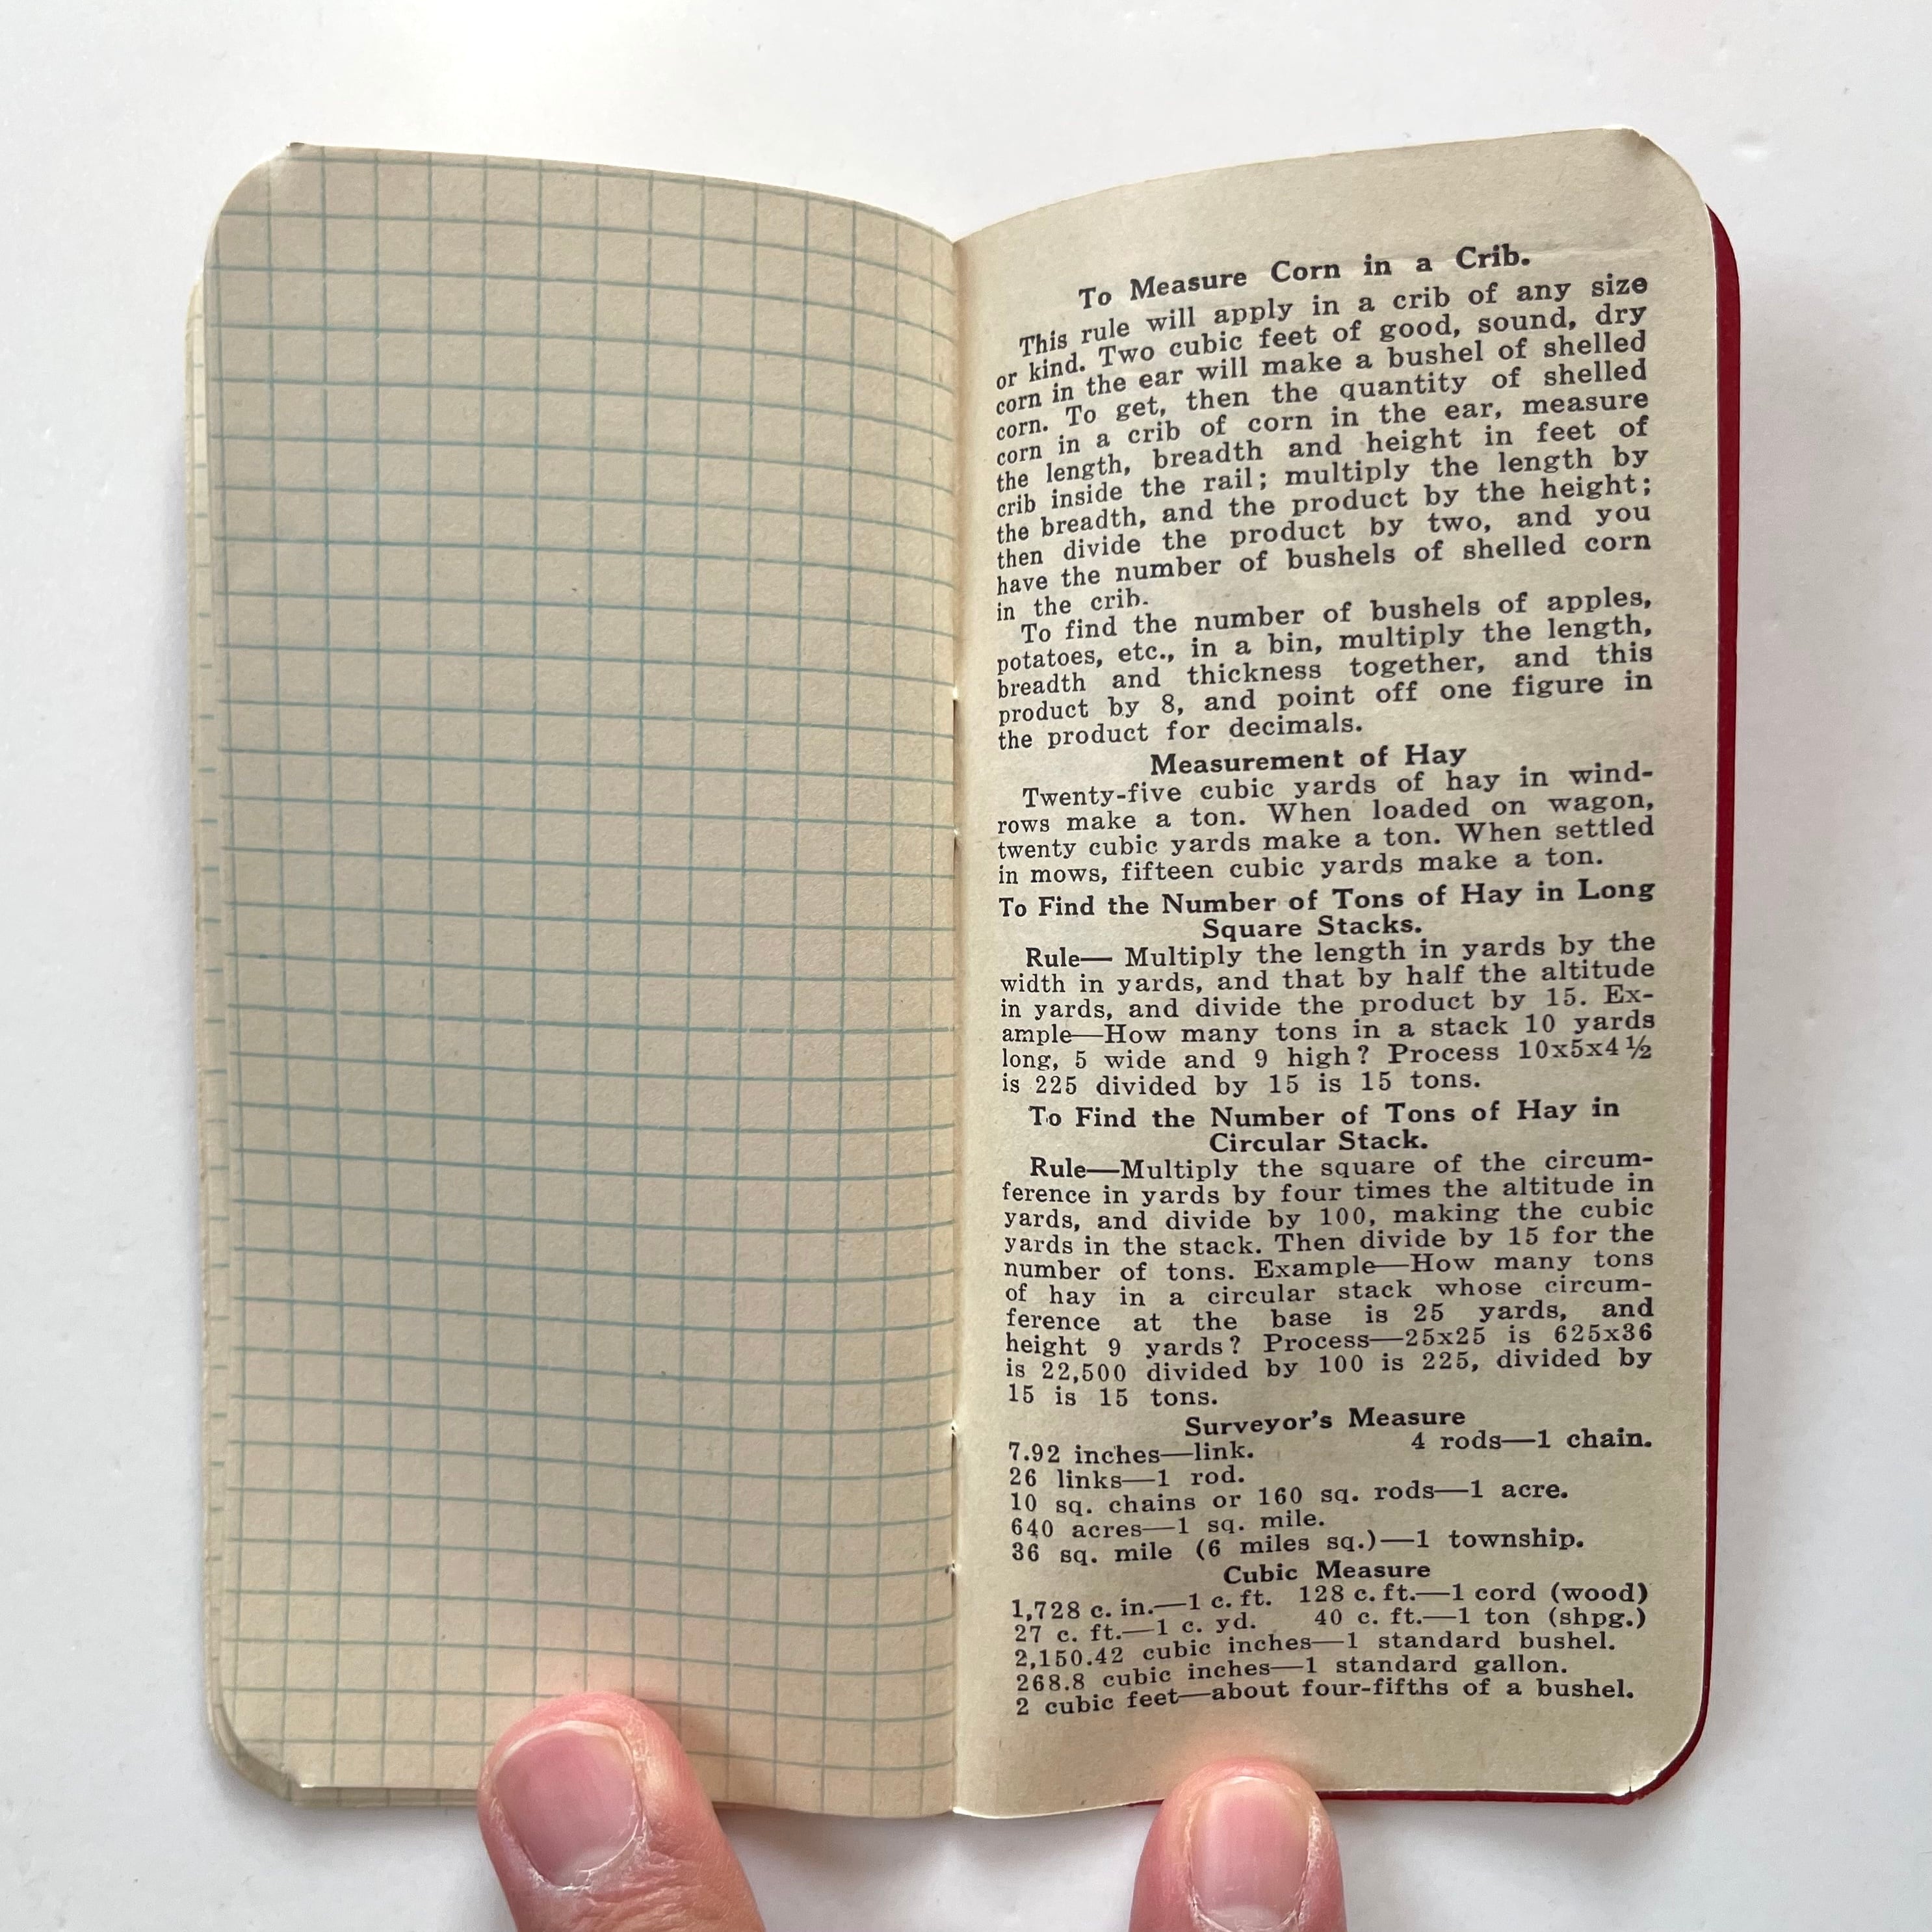 To Measure Corn in a Crib.
This rule will apply in a crib of any size
or kind. Two cubic feet of good, sound, dry
corn in the ear will make a bushel of shelled
corn. To get, then the quantity of shelled
corn in a crib of corn in the ear, measure
the length, breadth and height in feet of
crib inside the rail; multiply the length by
the breadth, and the product by the height;
then divide the product by two, and you
have the number of bushels of shelled corn
in the crib.
To find the number of bushels of apples,
potatoes, etc., in a bin, multiply the length,
breadth and thickness together, and this
product by 8, and point off one figure in
the product for decimals.
Measurement of Hay
Twenty-five cubic yards of hay in wind-
rows make a ton. When loaded on wagon,
twenty cubic yards make a ton. When settled
in mows, fifteen cubic yards make a ton.
To Find the Number of Tons of Hay in Long
Square Stacks.
Rule— Multiply the length in yards by the
width in yards, and that by half the altitude
in yards, and divide the product by 15. Ex-
ample—How many tons in a stack 10 yards
long, 5 wide and 9 high? Process 10x5x4½
is 225 divided by 15 is 15 tons.
To Find the Number of Tons of Hay in
Circular Stack.
Rule—Multiply the square of the circum-
ference in yards by four times the altitude in
yards, and divide by 100, making the cubic
yards in the stack. Then divide by 15 for the
number of tons. Example—How many tons
of hay in a circular stack whose circum-
ference at the base is 25 yards, and
height 9 yards? Process—25x25 is 625x36
is 22,500 divided by 100 is 225, divided by
15 is 15 tons.
Surveyor's Measure
7.92 inches—link. 4 rods—1 chain.
26 links—1 rod.
10 sq. chains or 160 sq. rods—1 acre.
640 acres—1 sq. mile.
36 sq. mile (6 miles sq.)—1 township.
Cubic Measure
1,728 c. in.—1 c. ft. 128 c. ft.—1 cord (wood)
27 c. ft.—1 c. yd. 40 c. ft.—1 ton (shpg.)
2,150.42 cubic inches—1 standard bushel.
268.8 cubic inches—1 standard gallon.
2 cubic feet—about four-fifths of a bushel.